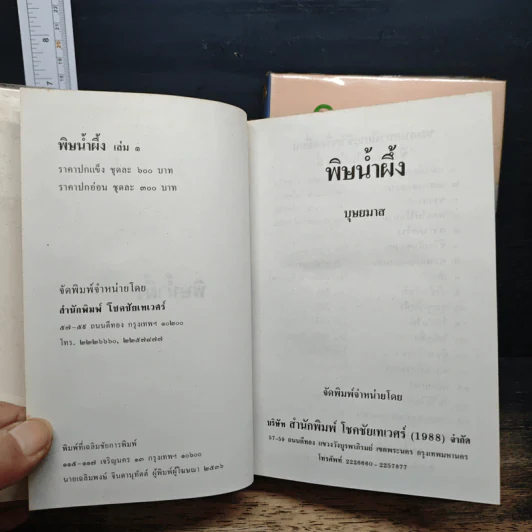 พิษน้ำผึ้ง เล่ม ๑
ราคาปกแข็ง ชุดละ ๖๐๐ บาท
ราคาปกอ่อน ชุดละ ๓๐๐ บาท
จัดพิมพ์จำหน่ายโดย
สำนักพิมพ์ โชคชัยเทเวศร์
๕๗-๕๙ ถนนดีทอง กรุงเทพฯ ๑๐๒๐๐
โทร. ๒๒๒๖๖๖๐, ๒๒๕๗๘๗๗
พิมพ์ที่เฉลิมชัยการพิมพ์
๑๑๕-๑๑๗ เจริญนคร ๑๓ กรุงเทพฯ ๑๐๖๐๐
นายเฉลิมพงษ์ จินดานุทัตต์ ผู้พิมพ์ผู้โฆษณา ๒๕๓๖
พิษน้ำผึ้ง
บุษยมาส
จัดพิมพ์จำหน่ายโดย
บริษัท สำนักพิมพ์ โชคชัยเทเวศร์ (1988) จำกัด
57-59 ถนนดีทอง แขวงวังบูรพาภิรมย์ เขตพระนคร กรุงเทพมหานคร
โทรศัพท์ 2226660-2257877